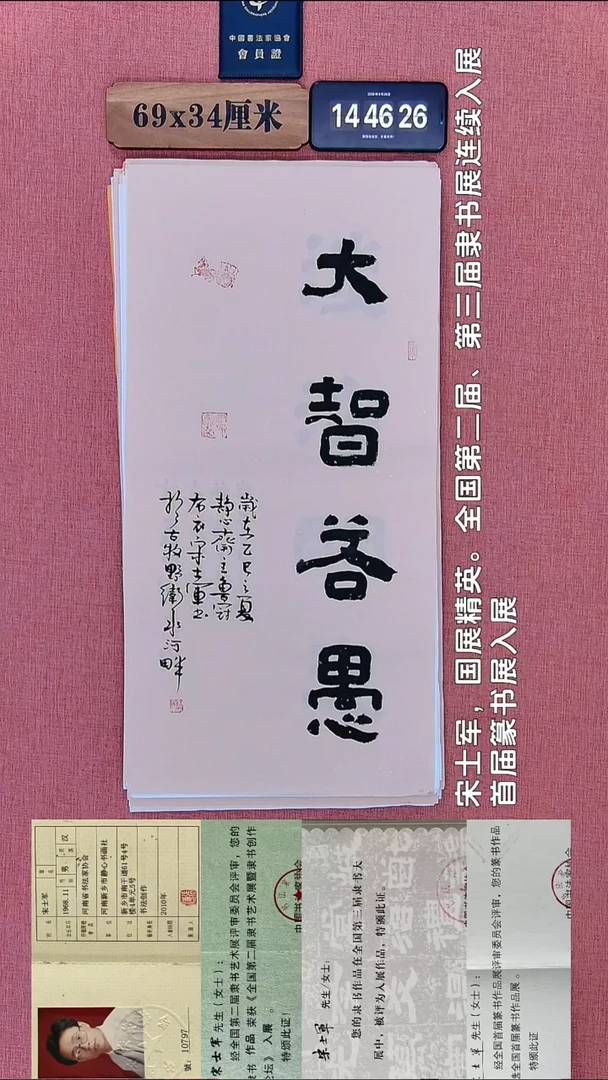 中國書法家協會
會員證
69x34厘米
14 46 26
大智若愚
歲在乙巳之夏
静心齋主曹冠
布衣宋士軍書
於古牧野衛水河畔
宋士军，国展精英。全国第二届、第三届隶书展连续入展
首届篆书展入展
宋士军
1968.11
男
汉
河南省书法家协会
河南新乡市静心书画社
新乡市南干道61号4号
楼4单元5号
书法创作
2010年
號：10797
宋士军 先生（女士）：
经全国第二届隶书艺术展评审委员会评审，您的
隶书 作品 荣获《全国第二届隶书艺术展暨隶书创作
论坛》 入展 。
特颁此证！
宋士軍 先生/女士：
您的隶书作品在全国第三届隶书大
展中，被评为入展作品，特颁此证。
士军 先生（女士）：
经全国首届篆书作品展评审委员会评审，您的篆书作品
选全国首届篆书作品展 。
特颁此证